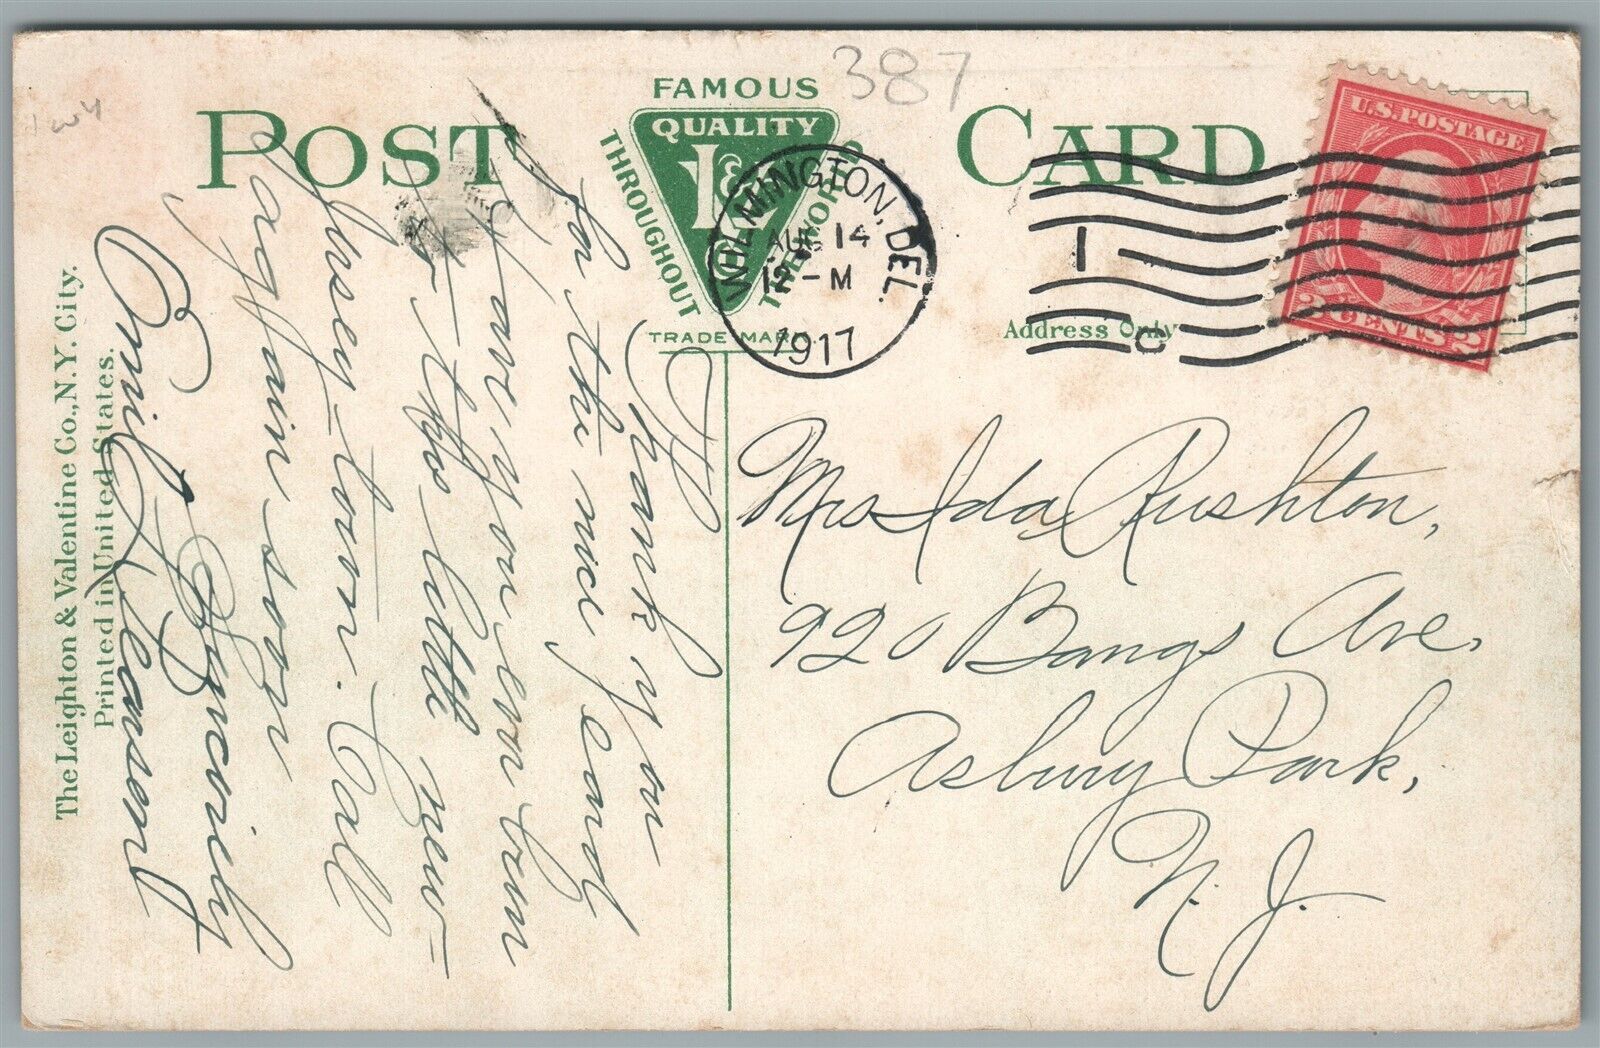 387
1 w 4
POST CARD
FAMOUS
QUALITY
L&V
THROUGHOUT
THE WORLD
TRADE MARK.
WILMINGTON, DEL.
AUG 14
12 - M
1917
1
U.S. POSTAGE
2 CENTS 2
Address Only
Thank you
for the nice card
Have you ever been
to this little new=
Jersey-town. Call
again soon
Sincerely
Emil
The Leighton & Valentine Co., N.Y. City.
Printed in United States.
Mrs Ida Rushton,
920 Bangs Ave,
Asbury Park,
N. J.